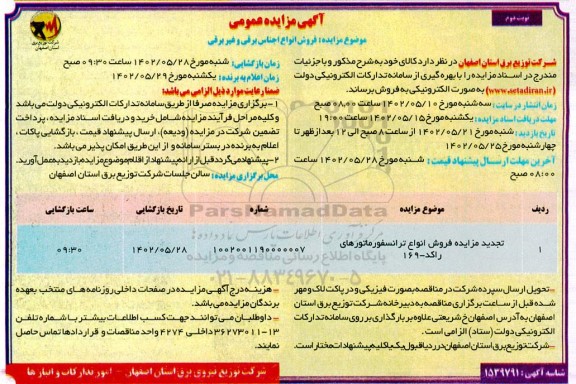 نوبت دوم
آگهی مزایده عمومی
موضوع مزایده: فروش انواع اجناس برقی و غیر برقی
شرکت توزیع برق
استان اصفهان
شرکت توزیع برق استان اصفهان در نظر دارد کالای خود به شرح مذکور و با جزئیات
مندرج در اسناد مزایده را با بهره گیری از سامانه تدارکات الکترونیکی دولت
(www.setadiran.ir) به صورت الکترونیکی به فروش برساند.
زمان انتشار در سایت: سه شنبه مورخ ۱۴۰۲/۰۵/۱۰ ساعت ۰۸:۰۰ صبح
مهلت دریافت اسناد مزایده: یکشنبه مورخ ۱۴۰۲/۰۵/۱۵ ساعت ۱۹:۰۰
تاریخ بازدید: شنبه مورخ ۱۴۰۲/۰۵/۲۱ از ساعت ۸ صبح الی ۱۲ بعد از ظهر تا
چهارشنبه مورخ ۱۴۰۲/۰۵/۲۵
آخرین مهلت ارسال پیشنهاد قیمت: شنبه مورخ ۱۴۰۲/۰۵/۲۸ ساعت
۰۸:۰۰ صبح
زمان بازگشایی: شنبه مورخ ۱۴۰۲/۰۵/۲۸ ساعت ۰۹:۳۰ صبح
زمان اعلام به برنده: یکشنبه مورخ ۱۴۰۲/۰۵/۲۹
ضمنا رعایت موارد ذیل الزامی می باشد:
۱- برگزاری مزایده صرفا از طریق سامانه تدارکات الکترونیکی دولت می باشد
و کلیه مراحل فرآیند مزایده شامل خرید و دریافت اسناد مزایده، پرداخت
تضمین شرکت در مزایده (ودیعه)، ارسال پیشنهاد قیمت، بازگشایی پاکات،
اعلام به برنده در بستر سامانه و از این طریق امکان پذیر می باشد.
۲- پیشنهاد می گردد قبل از ارائه پیشنهاد از اقلام موضوع مزایده بازدید به عمل آورید.
محل برگزاری مزایده: سالن جلسات شرکت توزیع برق استان اصفهان
ردیف موضوع مزایده شماره تاریخ بازگشایی ساعت بازگشایی
۱ تجدید مزایده فروش انواع ترانسفورماتورهای راکد-۱۶۹ ۱۰۰۲۰۰۱۱۹۰۰۰۰۰۰۷ ۱۴۰۲/۰۵/۲۸ ۰۹:۳۰
ParsNamadData
پایگاه اطلاع رسانی مناقصه و مزایده
۰۲۱-۸۸۳۴۹۶۷۰-۵
– تحویل ارسال سپرده شرکت در مناقصه بصورت فیزیکی و در پاکت لاک و مهر
شده قبل از ساعت برگزاری مناقصه به دبیرخانه شرکت توزیع برق استان
اصفهان به آدرس اصفهان خ شریعتی علاوه بر بارگذاری بر روی سامانه تدارکات
الکترونیکی دولت (ستاد) الزامی است.
– شرکت توزیع برق استان اصفهان در رد یا قبول یک یا کلیه پیشنهادات مختار است.
– هزینه درج آگهی مزایده در صفحات داخلی روزنامه های منتخب بعهده
برندگان مزایده می باشد.
– داوطلبان می توانند جهت کسب اطلاعات بیشتر با شماره تلفن
۱۳-۳۶۲۷۳۰۱۱ داخلی ۴۲۷۴ واحد مناقصات و قراردادها تماس حاصل
نمایند.
شناسه آگهی: ۱۵۳۹۷۹۱
شرکت توزیع نیروی برق استان اصفهان - امور تدارکات و انبارها